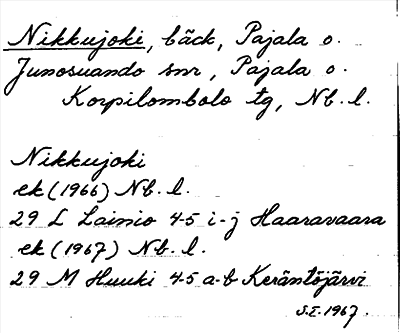 Nikkujoki, bäck, Pajala o.
Junosuando snr, Pajala o.
Korpilombolo tg, Nb. l.
Nikkujoki
ek (1966) Nb. l.
29 L Lainio 4-5 i-j Haaravaara
ek (1967) Nb. l.
29 M Huuki 4-5 a-b Keräntöjärvi
S.I. 1967.